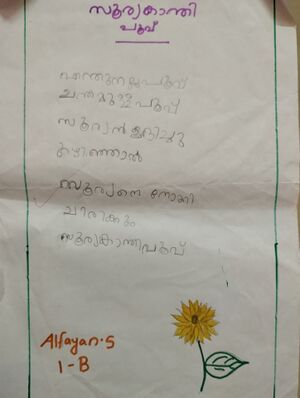 സൂര്യകാന്തി
പൂവ്
എന്തുനല്ലപൂവ്
ചന്തമുള്ളപൂവ്
സൂര്യൻ ഉദിച്ചു
കഴിഞ്ഞാൽ
സൂര്യനെ നോക്കി
ചിരിക്കും
സൂര്യകാന്തിപൂവ്
Alfayan.S
1-B